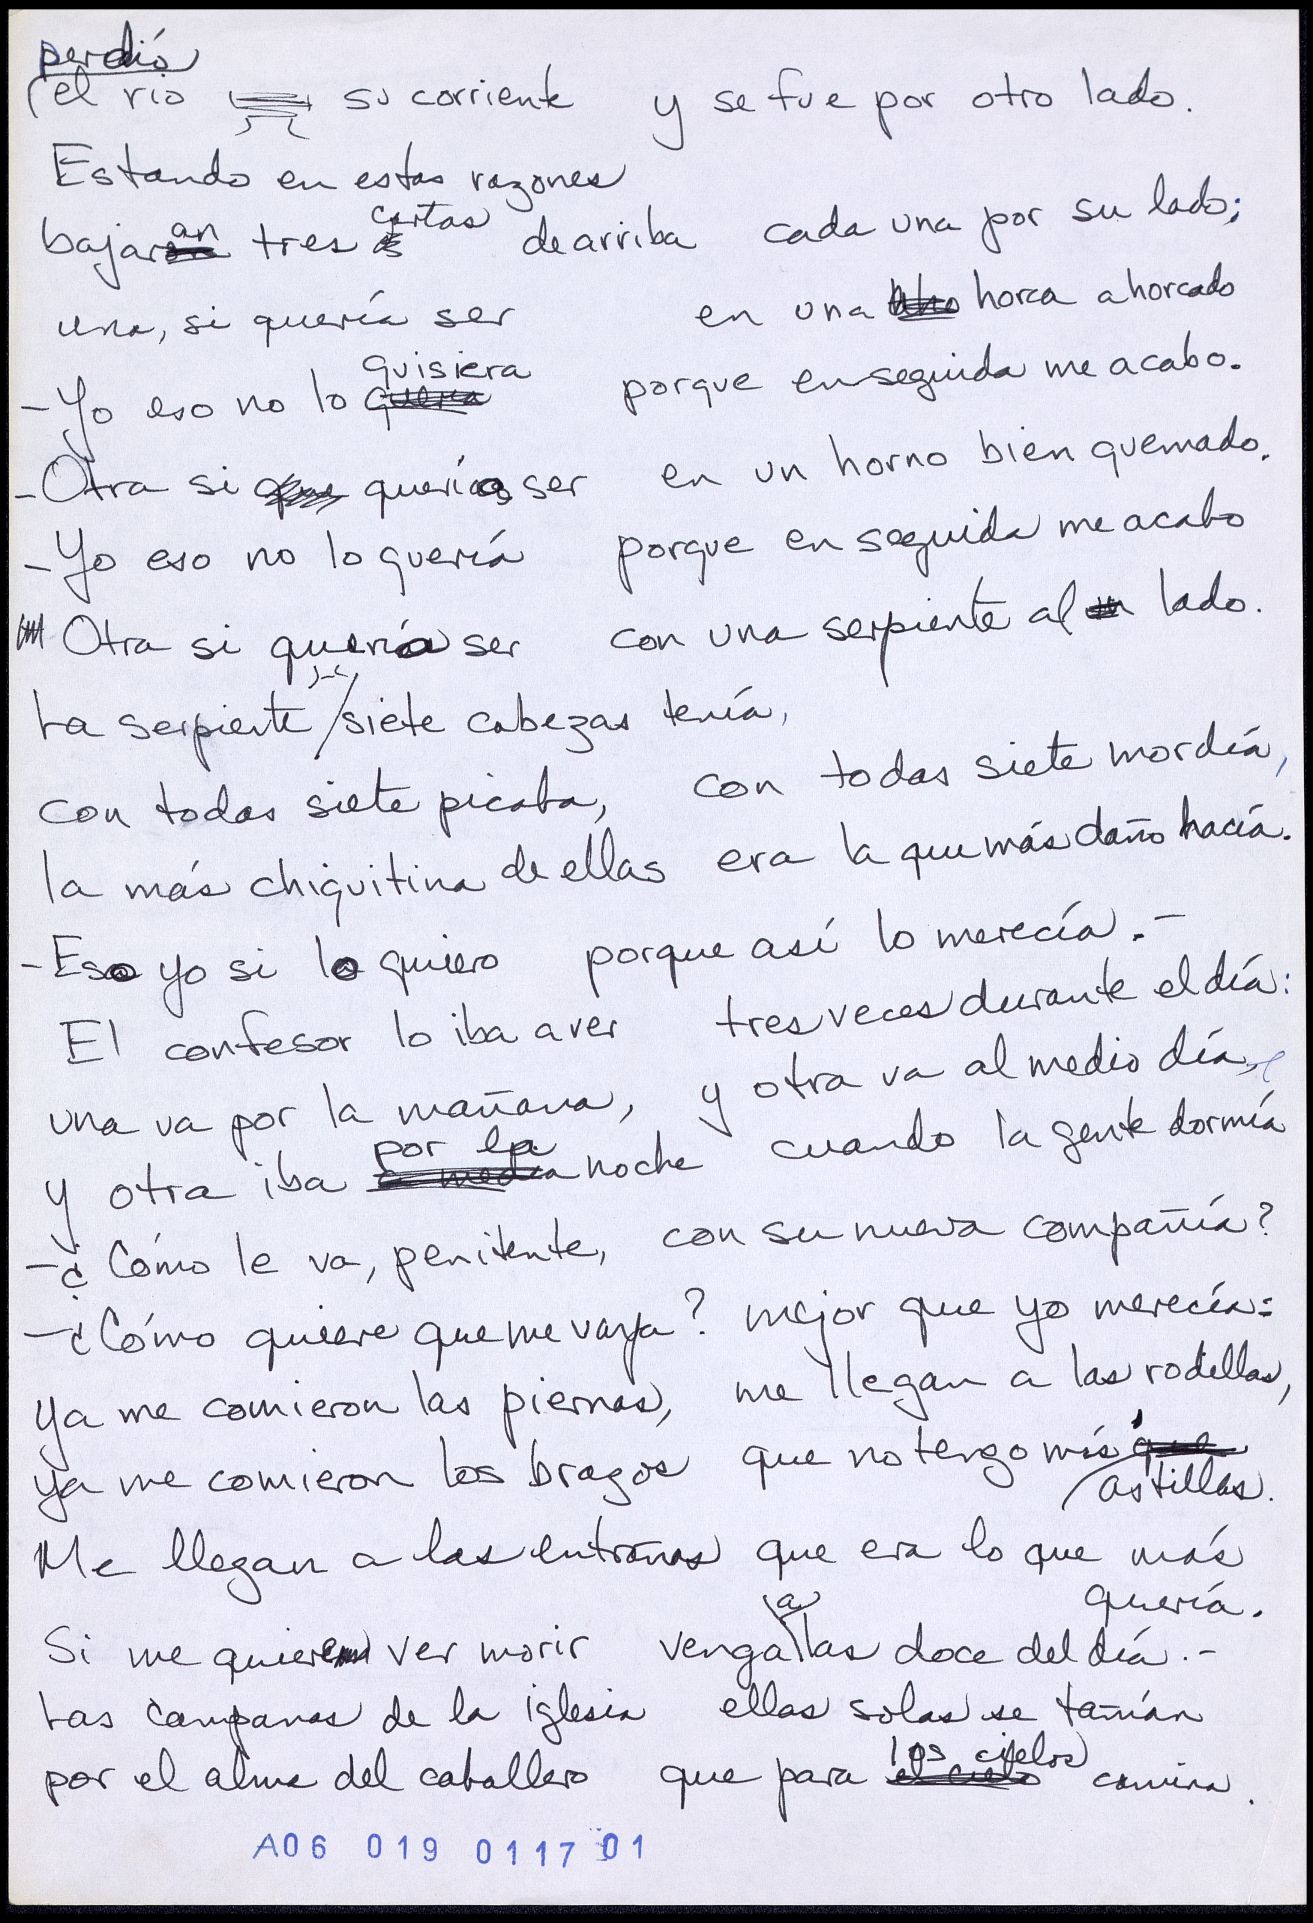 perdió
(el río su corriente y se fue por otro lado.
Estando en estas razones
cartas
bajaran tres de arriba cada una por su lado;
una, si quería ser en una horca ahorcado
quisiera
-Yo eso no lo quería porque enseguida me acabo.
-Otra si que quería ser en un horno bien quemado.
-Yo eso no lo quería porque en seguida me acabo
Otra si quería ser con una serpiente al lado.
La serpiente / siete cabezas tenía,
con todas siete picaba, con todas siete mordía,
la más chiquitina de ellas era la que más daño hacía.
-Eso yo si lo quiero porque así lo merecía.-
El confesor lo iba a ver tres veces durante el día:
una va por la mañana, y otra va al medio día,
por la
y otra iba a media noche cuando la gente dormía
-¿Cómo le va, penitente, con su nueva compañía?
-¿Cómo quiere que me vaya? mejor que yo merecía:
ya me comieron las piernas, me llegan a las rodillas,
ya me comieron los brazos que no tengo más que
astillas.
Me llegan a las entrañas que era lo que más
quería.
a
Si me quieren ver morir venga las doce del día.-
Las campanas de la iglesia ellas solas se tañían
los cielos
por el alma del caballero que para el cielo camina.
A06 019 0117 01